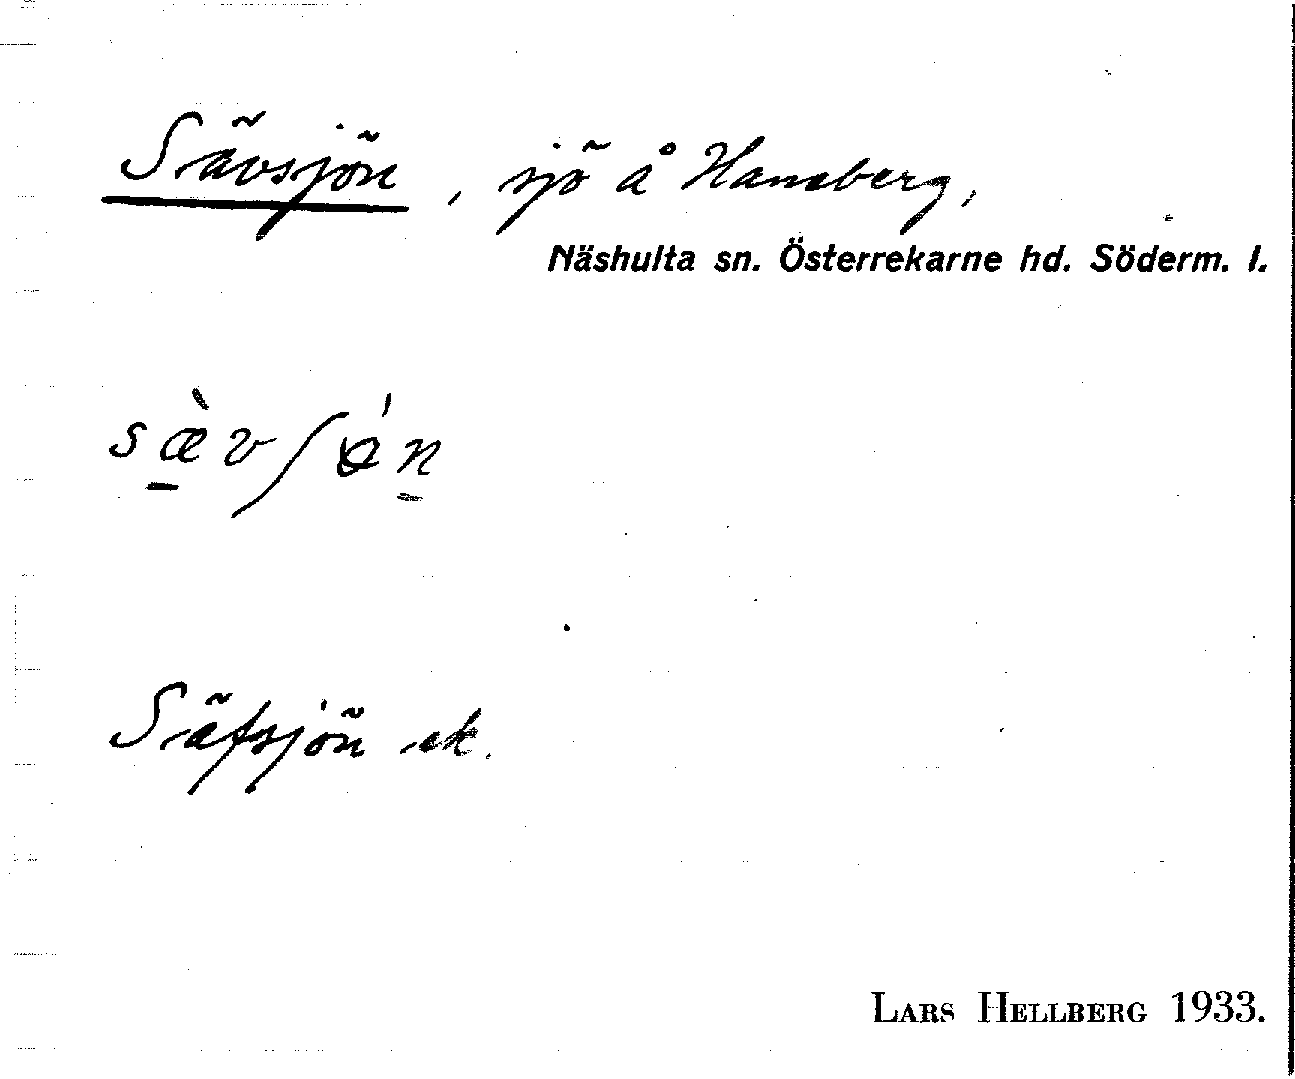 Sävsjön, sjö å Hansberg,
Näshulta sn. Österrekarne hd. Söderm. l.
sæ̀vʃǿn
Säfsjön ek.
LARS HELLBERG 1933.